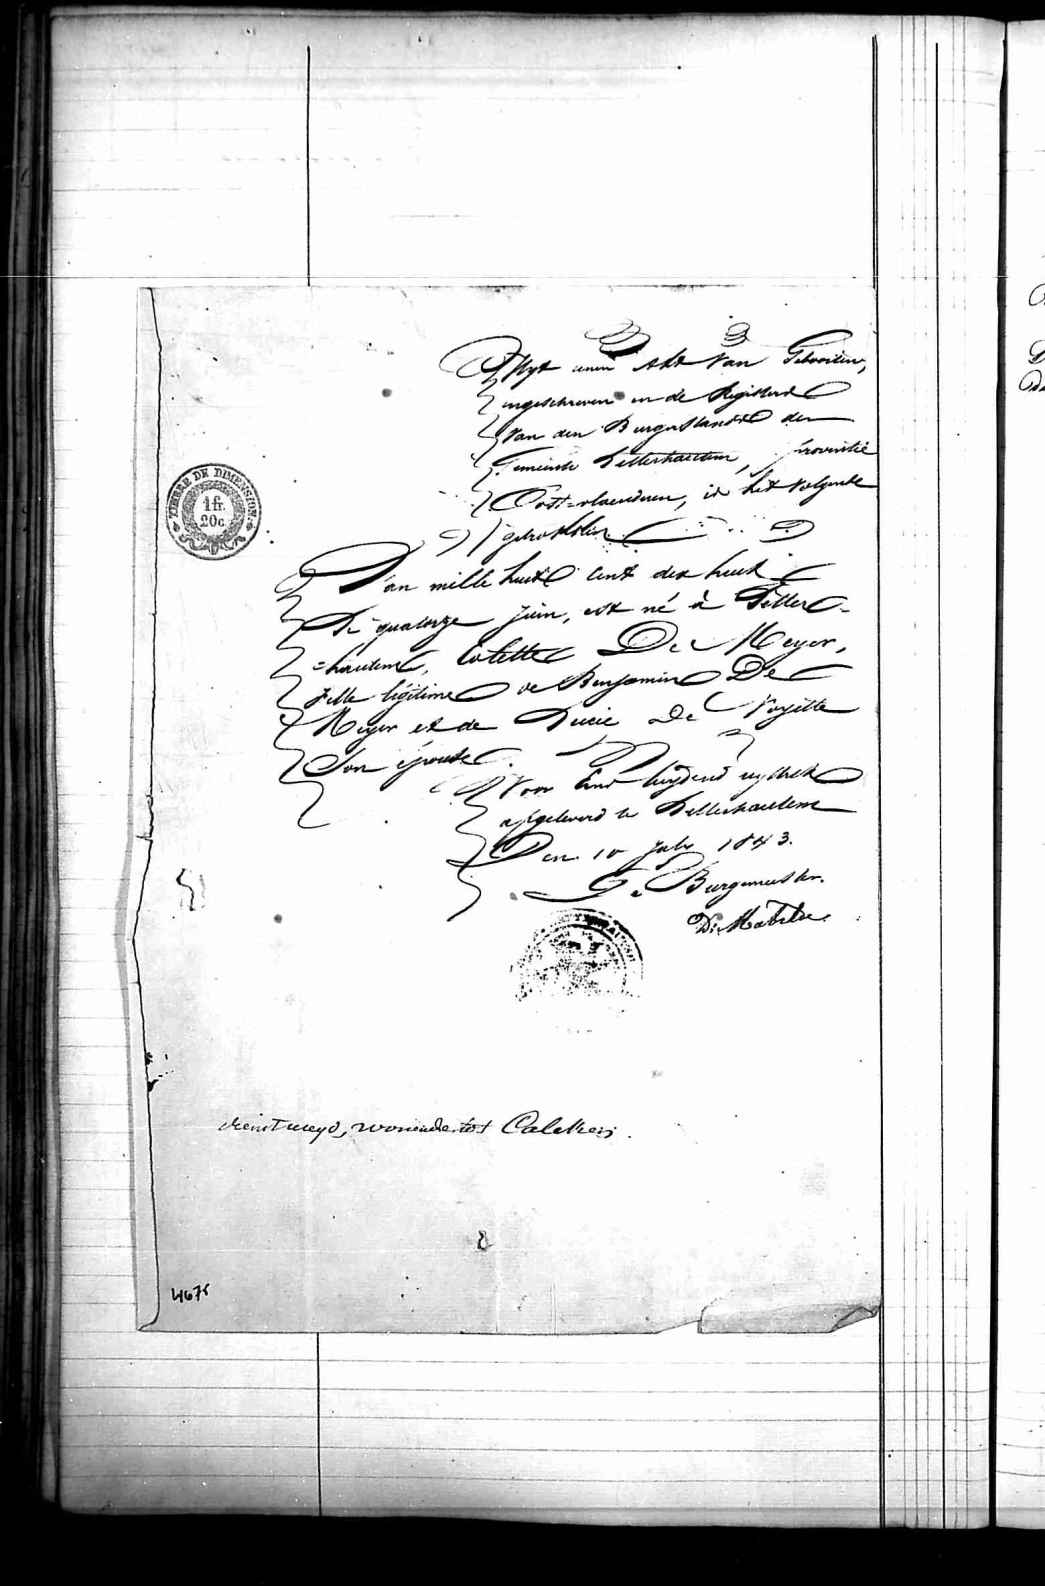 Uyt eenen Akt van Geboorten,
ingeschreven in de Registers
van den Burgerstand der
Gemeente Letterhautem, provintie
Oost-vlaenderen, is het volgende
getrokken
L'an mille huit cent dix huit
Le quatorze juin, est né à Letter-
=hautem, Colette De Meyer,
fille légitime de Benjamin De
Meyer et de Lucie De
Son épouse.
Voor Eensluydend uyttrek
afgeleverd te Letterhautem
Den 10 july 1843.
De Burgemeester.
TIMBRE DE DIMENSION.
1 fr.
20c
dienstmeyd, wonende tot Calcken.